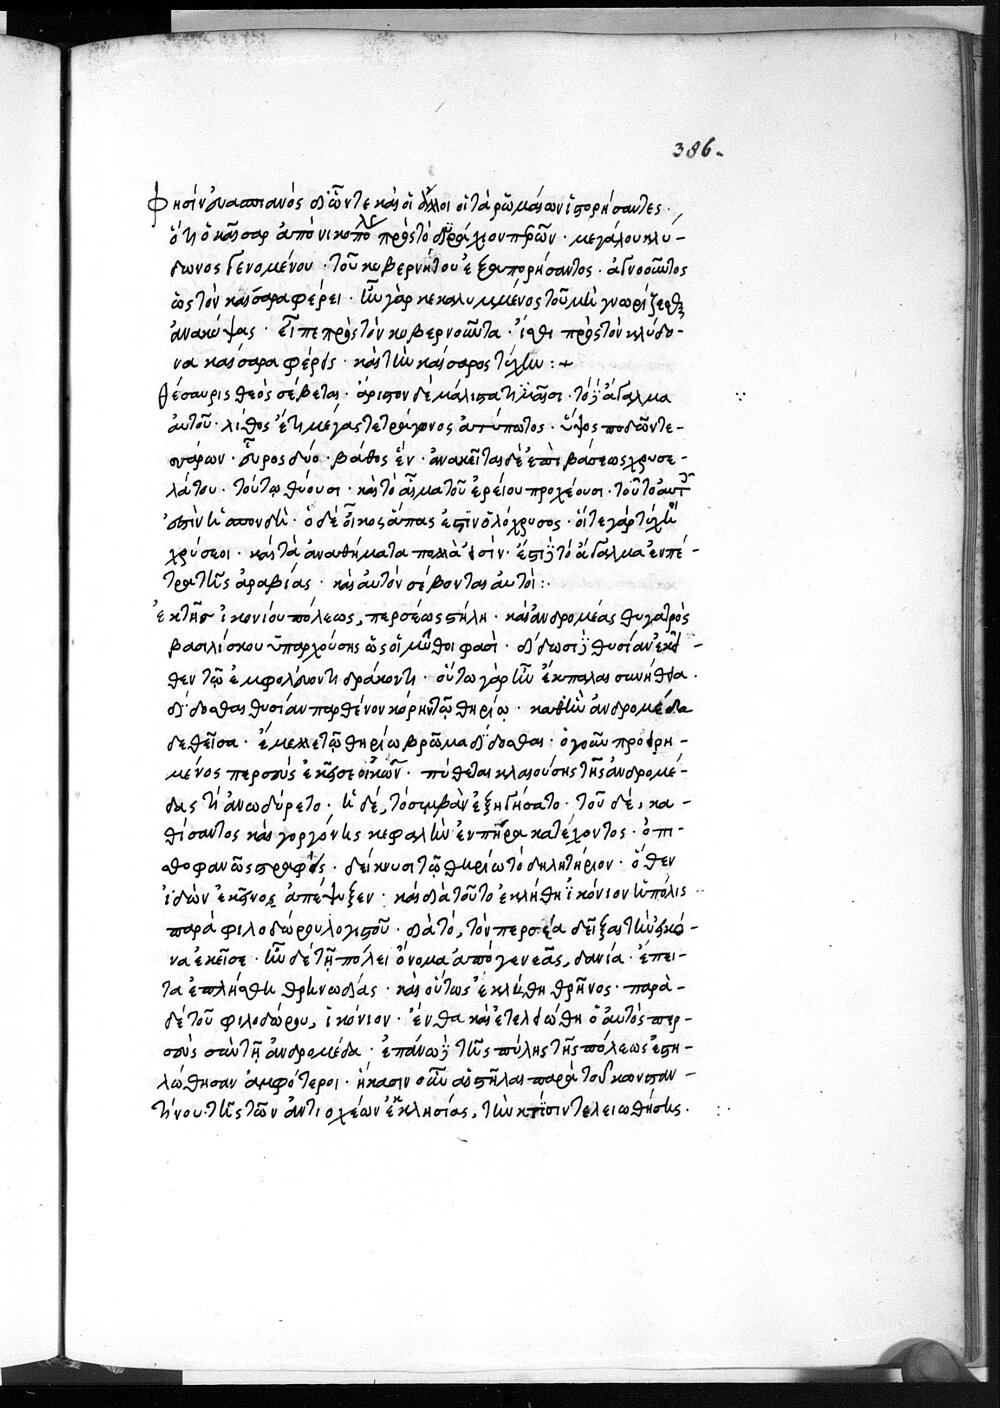 386.
Φησὶν ὁ υἀππιανός δίων τε καὶ οἱ ἄλλοι οἱ τὰ ῥωμαίων ἱστορήσαντες.
ὅτι ὁ καῖσαρ ἀπὸ νικοπόλεως πρὸς τὸ δυρράχιον περῶν · μεγάλου κλύ-
δωνος γενομένου · τοῦ κυβερνήτου ἐξαπορήσαντος · ἀγνοοῦντος
ὡς τὸν καίσαρα φέρει · ἦν γὰρ κεκαλυμμένος τοῦ μὴ γνωρίζεσθαι
ἀνακύψας · εἶπε πρὸς τὸν κυβερνοῦντα · ἴθι πρὸς τὸν κλύδω-
να καίσαρα φέρεις · καὶ τὴν καίσαρος τύχην :+
Θέσαυρις θεὸς σέβεται · ἄριστον δὲ μάλιστα τιμῶσι · τὸ δὲ ἄγαλμα
αὐτοῦ · λίθος ἔστι μέγας τετράγωνος ἀτύπωτος · ὕψος ποδῶν τε-
σσάρων · εὖρος δύο · βάθος ἕν · ἀνακεῖται δὲ ἐπὶ βάσεως χρυσε-
λάτου · τούτῳ θύουσι · καὶ τὸ αἷμα τοῦ ἱερείου προχέουσι · τοῦτο αὐτ
ἐστὶν ἡ σπονδὴ · ὁ δὲ οἶκος ἅπας ἐστὶν ὁλόχρυσος · οἵ τε γὰρ τοῖχοι
χρύσεοι · καὶ τὰ ἀναθήματα πολλὰ εἰσίν · ἔστι δὲ τὸ ἄγαλμα ἐν πέ-
τρα τῆς ἀραβίας · καὶ αὐτὸν σέβονται αὐτοί :·
Ἐκ τῆς ἰκονίου πόλεως, περσέως στήλη · καὶ ἀνδρομέας θυγατρὸς
βασιλίσκου ὑπαρχούσης ὡς οἱ μῦθοι φασί · δίδωσι δὲ θυσίαν ἐκεῖ-
θεν τῷ ἐμφολεύοντι δράκοντι · οὕτω γὰρ ἦν ἔκπαλαι συνήθεια ·
δίδοσθαι θυσίαν παρθένον κόρην τῷ θηρίῳ · καθ' ἣν ἀνδρομέδα
δεθεῖσα · ἔμελλε τῷ θηρίω βρῶμα δίδοσθαι · ὁ γοῦν προειρη-
μένος περσεύς ἐκεῖσε οἰκῶν · πύθεται κλαιούσης τῆς ἀνδρομέ-
δας τί ἀνωδύρετο · ἡ δέ, τὸ συμβὰν ἐξηγήσατο · τοῦ δέ, κα-
θίσαντος καὶ γοργόνης κεφαλὴν ἐν πήρα κατέχοντος · ὀπι-
σθοφανῶς στραφείς · δείκνυσι τῷ θηρίω τὸ δηλητήριον · ὅθεν
ἰδὼν ἐκεῖνος ἀπέψυξεν · καὶ διὰ τοῦτο ἐκλήθη ἰκόνιον ἡ πόλις
παρὰ φιλοδώρου λογιστοῦ · διὰ τό, τὸν περσέα δεῖξαι τὴν εἰκό-
να ἐκεῖσε · ἦν δὲ τῇ πόλει ὄνομα ἀπὸ γενεᾶς, δανία · ἔπει-
τα ἐπλήσθη θρηνωδίας · καὶ οὕτως ἐκλήθη θρῆνος · παρὰ-
δὲ τοῦ φιλοδώρου, ἰκόνιον · ἔνθα καὶ ἐτελειώθη ὁ αὐτὸς περ-
σεὺς σὺν τῇ ἀνδρομέδα · ἐπάνω δὲ τῆς πύλης τῆς πόλεως ἐστη-
λώθησαν ἀμφότεροι · ἥκασιν οὖν αἱ στῆλαι παρὰ τοῦ κωνσταν-
τίνου · τῆς τῶν ἀντιοχέων ἐκκλησίας, τὴν κτίσιν τελειωθήσης.